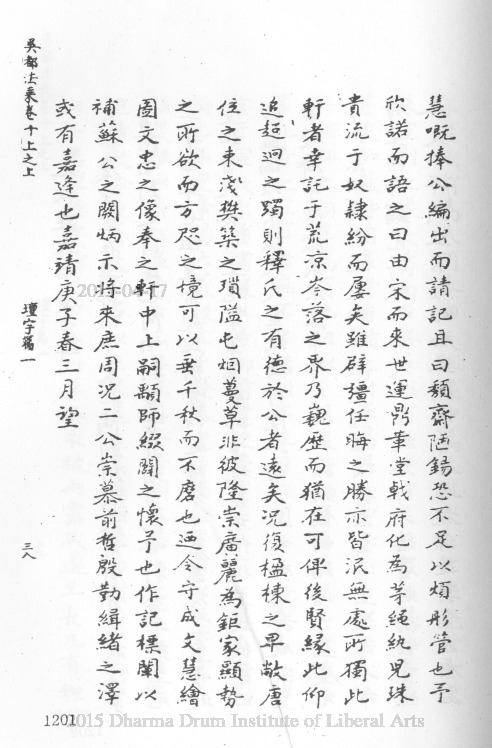 慧嘅捧公編出而請記且曰頹齋陋鍚恐不足以煩彤管也予
欣諾而語之曰由宋而來世運鼎革堂戟府化為茅繩紈兒珠
貴流于奴隸紛而屢矣雖辟彊任晦之勝亦皆泯無處所獨此
軒者幸託于荒凉岑落之界乃巍歷而猶在可俾後賢緣此仰
追超迥之躅則釋氏之有德於公者遠矣况復楹棟之卑敝唐
位之束淺樊築之瑣隘屯烟蔓草非彼隆崇廣麗為鉅家顯勢
之所欲而方咫之境可以垂千秋而不磨也迺令守成文慧繪
圖文忠之像奉之軒中上嗣顒師綴闕之懷予也作記標闡以
補蘇公之闕炳示將來庶周况二公崇慕前哲殷勤緝緒之澤
或有嘉逢也嘉靖庚子春三月望
吳都法乘卷十上之上
壇宇篇一
三八
1201
2015-04-17
2015 Dharma Drum Institute of Liberal Arts